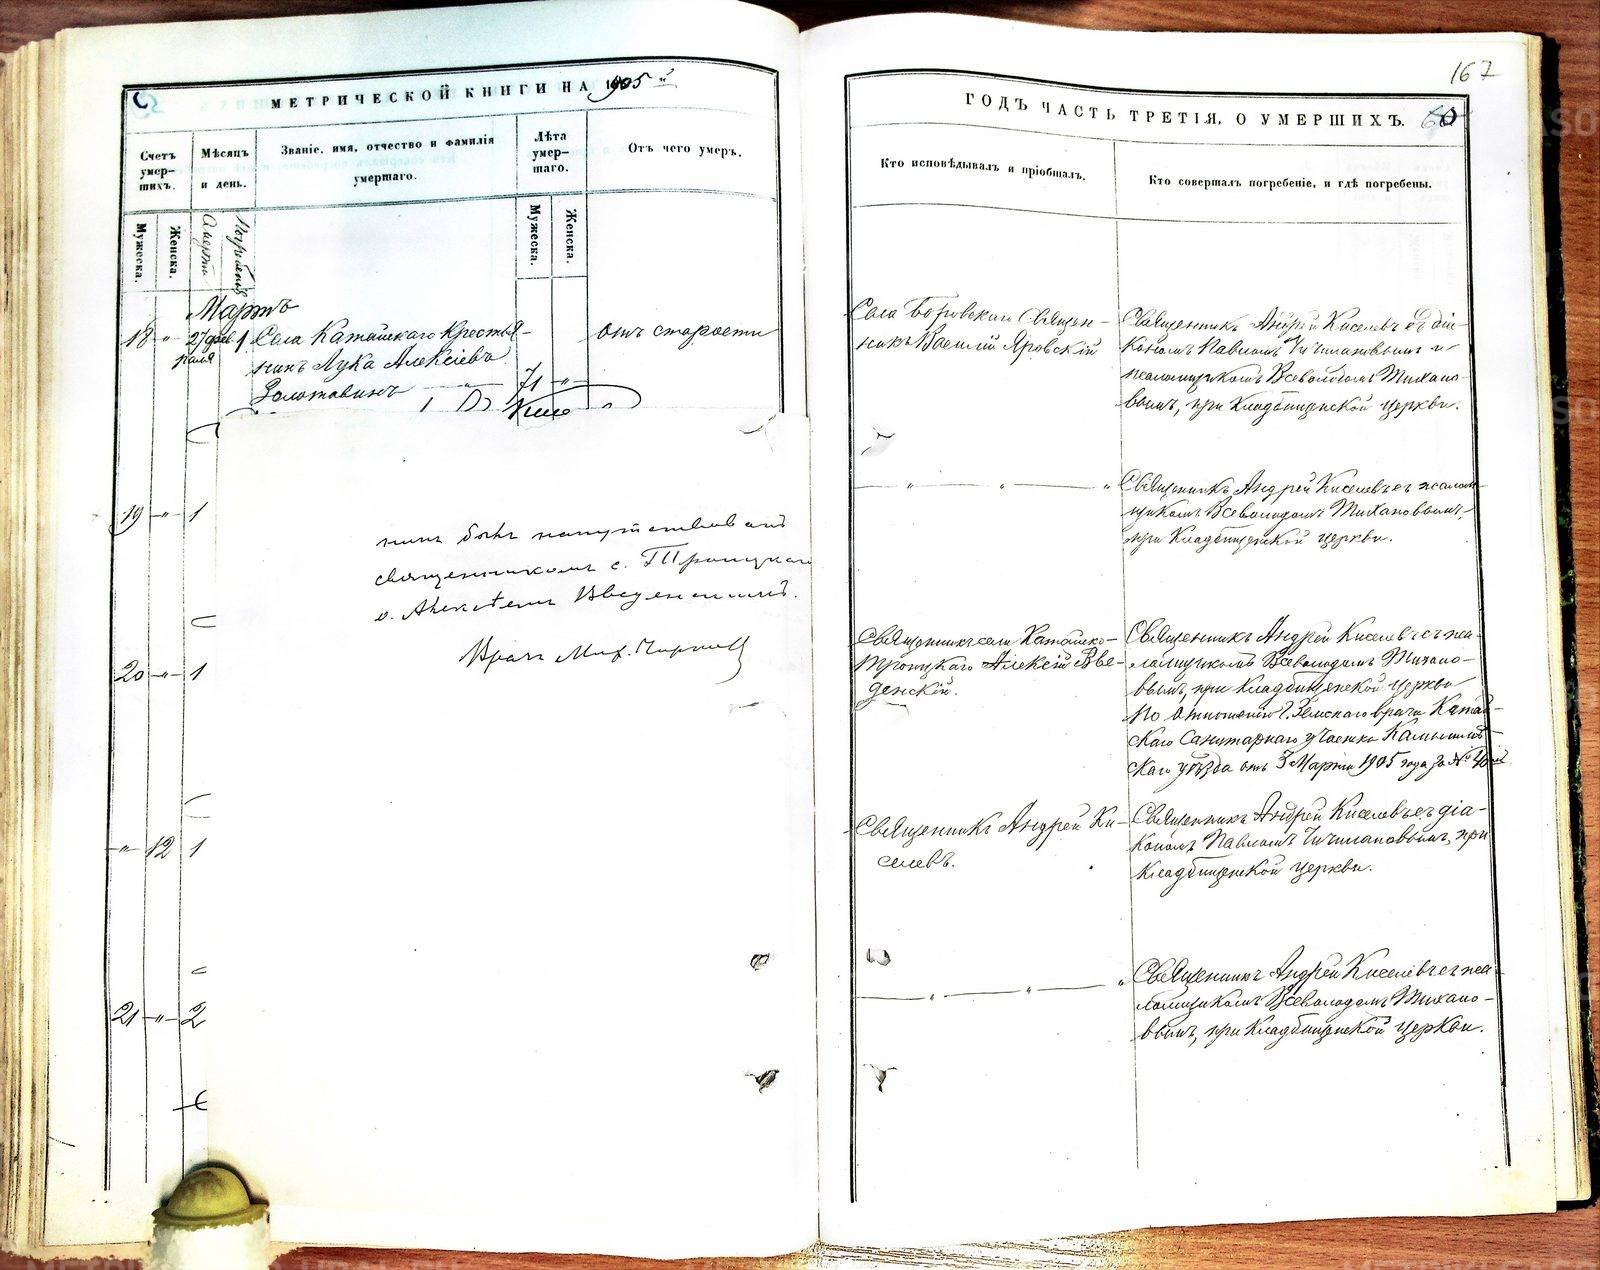 МЕТРИЧЕСКОЙ КНИГИ НА 1905й
Счетъ умер-шихъ.
Мѣсяцъ и день.
Званіе, имя, отчество и фамилія умершаго.
Лѣта умер-шаго.
Отъ чего умеръ.
Мужеска.
Женска.
Смерти
Погребенія
Мужеска.
Женска.
Мартъ
18 " 27 фев- 1. Села Катайскаго крестья- отъ старости
раля
нинъ Лука Алексѣевъ
Золотавинъ " 71 "
19 " 1
нинъ былъ напутствованъ
священникомъ с. Троицкаго
о. Алексѣемъ Введенскимъ.
Врач
20 " 1
" 12 1
21 " 2
167
ГОДЪ ЧАСТЬ ТРЕТІЯ, О УМЕРШИХЪ. 60
Кто исповѣдывалъ и пріобщалъ.
Кто совершалъ погребеніе, и гдѣ погребены.
Села Боровскаго Священ-
никъ Василій Яровскій
Священникъ Андрей Киселевъ съ діа-
кономъ Павломъ Чичилановымъ и
псаломщикомъ Всеволодомъ Тихано-
вымъ, при Кладбищенской церкви.
" " "
Священникъ Андрей Киселевъ съ псалом-
щикомъ Всеволодомъ Тихановымъ,
при Кладбищенской церкви.
Священникъ села Катайско-
Троицкаго Алексій Вве-
денскій.
Священникъ Андрей Киселевъ съ пса-
ломщикомъ Всеволодомъ Тихано-
вымъ, при Кладбищенской церкви
по отношенію Г. Земскаго врача Катай-
скаго Санитарнаго участка Камышлов-
скаго уѣзда отъ 3 Марта 1905 года за №
Священникъ Андрей Ки-
селевъ.
Священникъ Андрей Киселевъ съ діа-
кономъ Павломъ Чичилановымъ, при
Кладбищенской церкви.
" " "
Священникъ Андрей Киселевъ съ пса-
ломщикомъ Всеволодомъ Тихано-
вымъ, при Кладбищенской церкви.